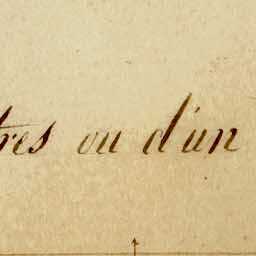 tres ou d'un